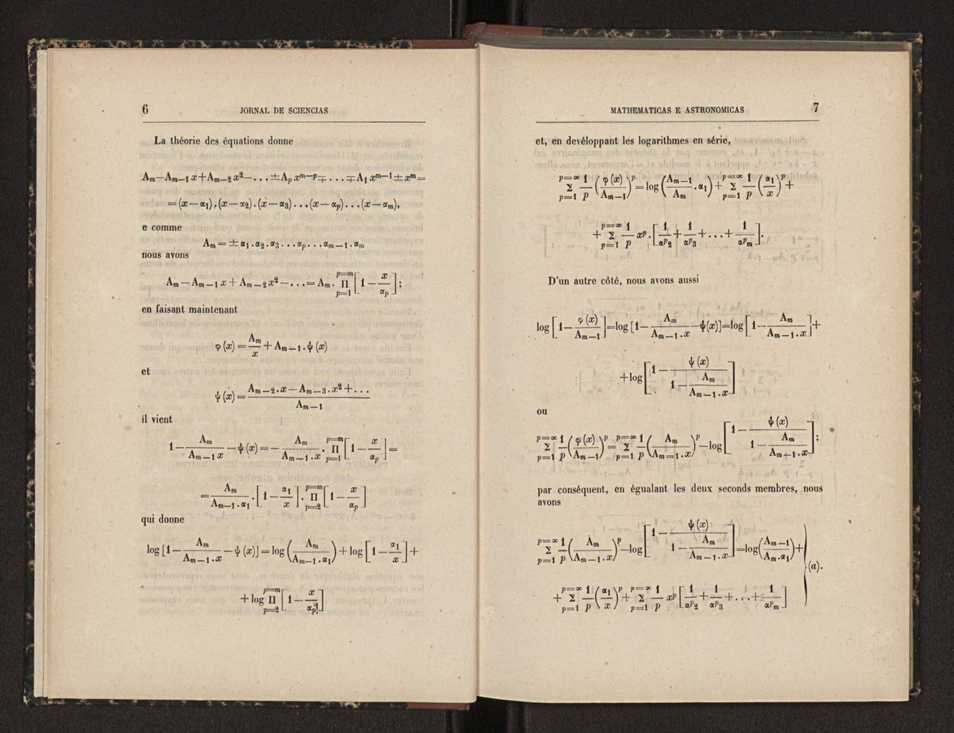 6 JORNAL DE SCIENCIAS
La théorie des équations donne
Aₘ—Aₘ₋₁ x+Aₘ₋₂ x²—...±Aₚ xᵐ⁻ᵖ∓...∓A₁ xᵐ⁻¹±xᵐ=
=(x—α₁).(x—α₂).(x—α₃)...(x—αₚ)...(x—αₘ),
e comme
Aₘ=±α₁.α₂.α₃...αₚ...αₘ₋₁.αₘ
nous avons
Aₘ—Aₘ₋₁ x+Aₘ₋₂ x²—...=Aₘ. Π_{p=1}^{p=m} [1—x/αₚ];
en faisant maintenant
φ(x)=Aₘ/x+Aₘ₋₁.ψ(x)
et
ψ(x)=(Aₘ₋₂.x—Aₘ₋₃.x²+...)/Aₘ₋₁
il vient
1—Aₘ/(Aₘ₋₁ x)—ψ(x)=—Aₘ/(Aₘ₋₁.x). Π_{p=1}^{p=m} [1—x/αₚ]=
=Aₘ/(Aₘ₋₁.α₁).[1—α₁/x]. Π_{p=2}^{p=m} [1—x/αₚ]
qui donne
log [1—Aₘ/(Aₘ₋₁.x)—ψ(x)]=log(Aₘ/(Aₘ₋₁.α₁))+log[1—α₁/x]+
+log Π_{p=2}^{p=m} [1—x/αₚ]
MATHEMATICAS E ASTRONOMICAS 7
et, en devéloppant les logarithmes en série,
Σ_{p=1}^{p=∞} 1/p (φ(x)/Aₘ₋₁)ᵖ=log(Aₘ₋₁/Aₘ.α₁)+Σ_{p=1}^{p=∞} 1/p (α₁/x)ᵖ+
+Σ_{p=1}^{p=∞} 1/p xᵖ.[1/αᵖ₂+1/αᵖ₃+...+1/αᵖₘ].
D'un autre côté, nous avons aussi
log[1—φ(x)/Aₘ₋₁]=log[1—Aₘ/(Aₘ₋₁.x)—ψ(x)]=log[1—Aₘ/(Aₘ₋₁.x)]+
+log[1—ψ(x)/(1—Aₘ/(Aₘ₋₁.x))]
ou
Σ_{p=1}^{p=∞} 1/p (φ(x)/Aₘ₋₁)ᵖ=Σ_{p=1}^{p=∞} 1/p (Aₘ/(Aₘ₌₁.x))ᵖ—log[1—ψ(x)/(1—Aₘ/(Aₘ₊₁.x))];
par conséquent, en égualant les deux seconds membres, nous
avons
Σ_{p=1}^{p=∞} 1/p (Aₘ/(Aₘ₋₁.x))ᵖ—log[1—ψ(x)/(1—Aₘ/(Aₘ₋₁.x))]=log(Aₘ₋₁/(Aₘ.α₁))+
+Σ_{p=1}^{p=∞} 1/p (α₁/x)ᵖ+Σ_{p=1}^{p=∞} 1/p xᵖ[1/αᵖ₂+1/αᵖ₃+...+1/αᵖₘ] (a).